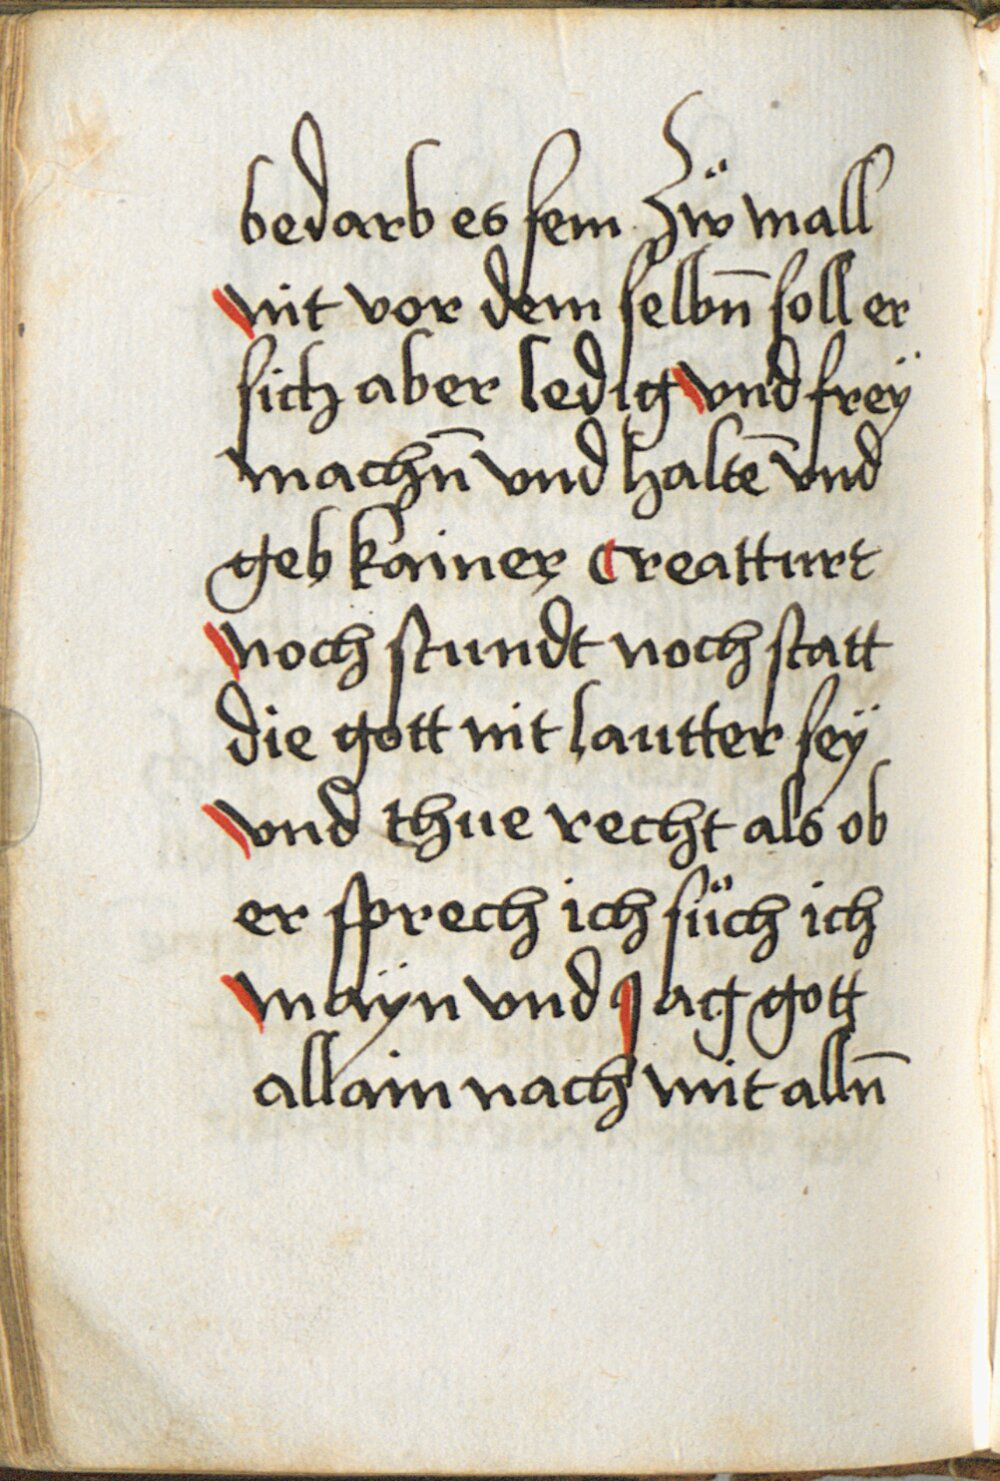 bedarb es sein zẅ mall
nit vor dem selbn̄ soll er
sich aber ledig vnd freÿ
machn̄ vnd haltē vnd
geb kainer Creatturt
noch stundt noch statt
die gott nit lautter seÿ
vnd thue recht als ob
er sprech ich süch ich
maÿn vnd Jag gott
allain nach mit alln̄